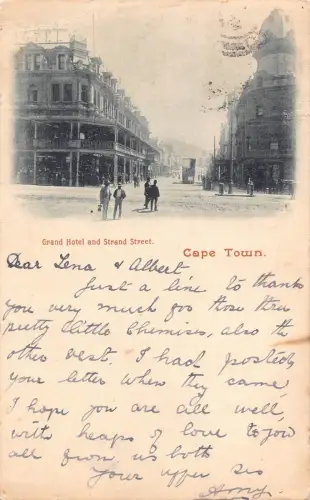 Grand Hotel and Strand Street.
Cape Town.
Dear Lena & Albert
Just a line to thank
you very much for those three
pretty little Chemises, also the
other vest. I had posted
your letter when they came
I hope you are all well,
with heaps of love to you
all from us both
Your affec sis
Amy.